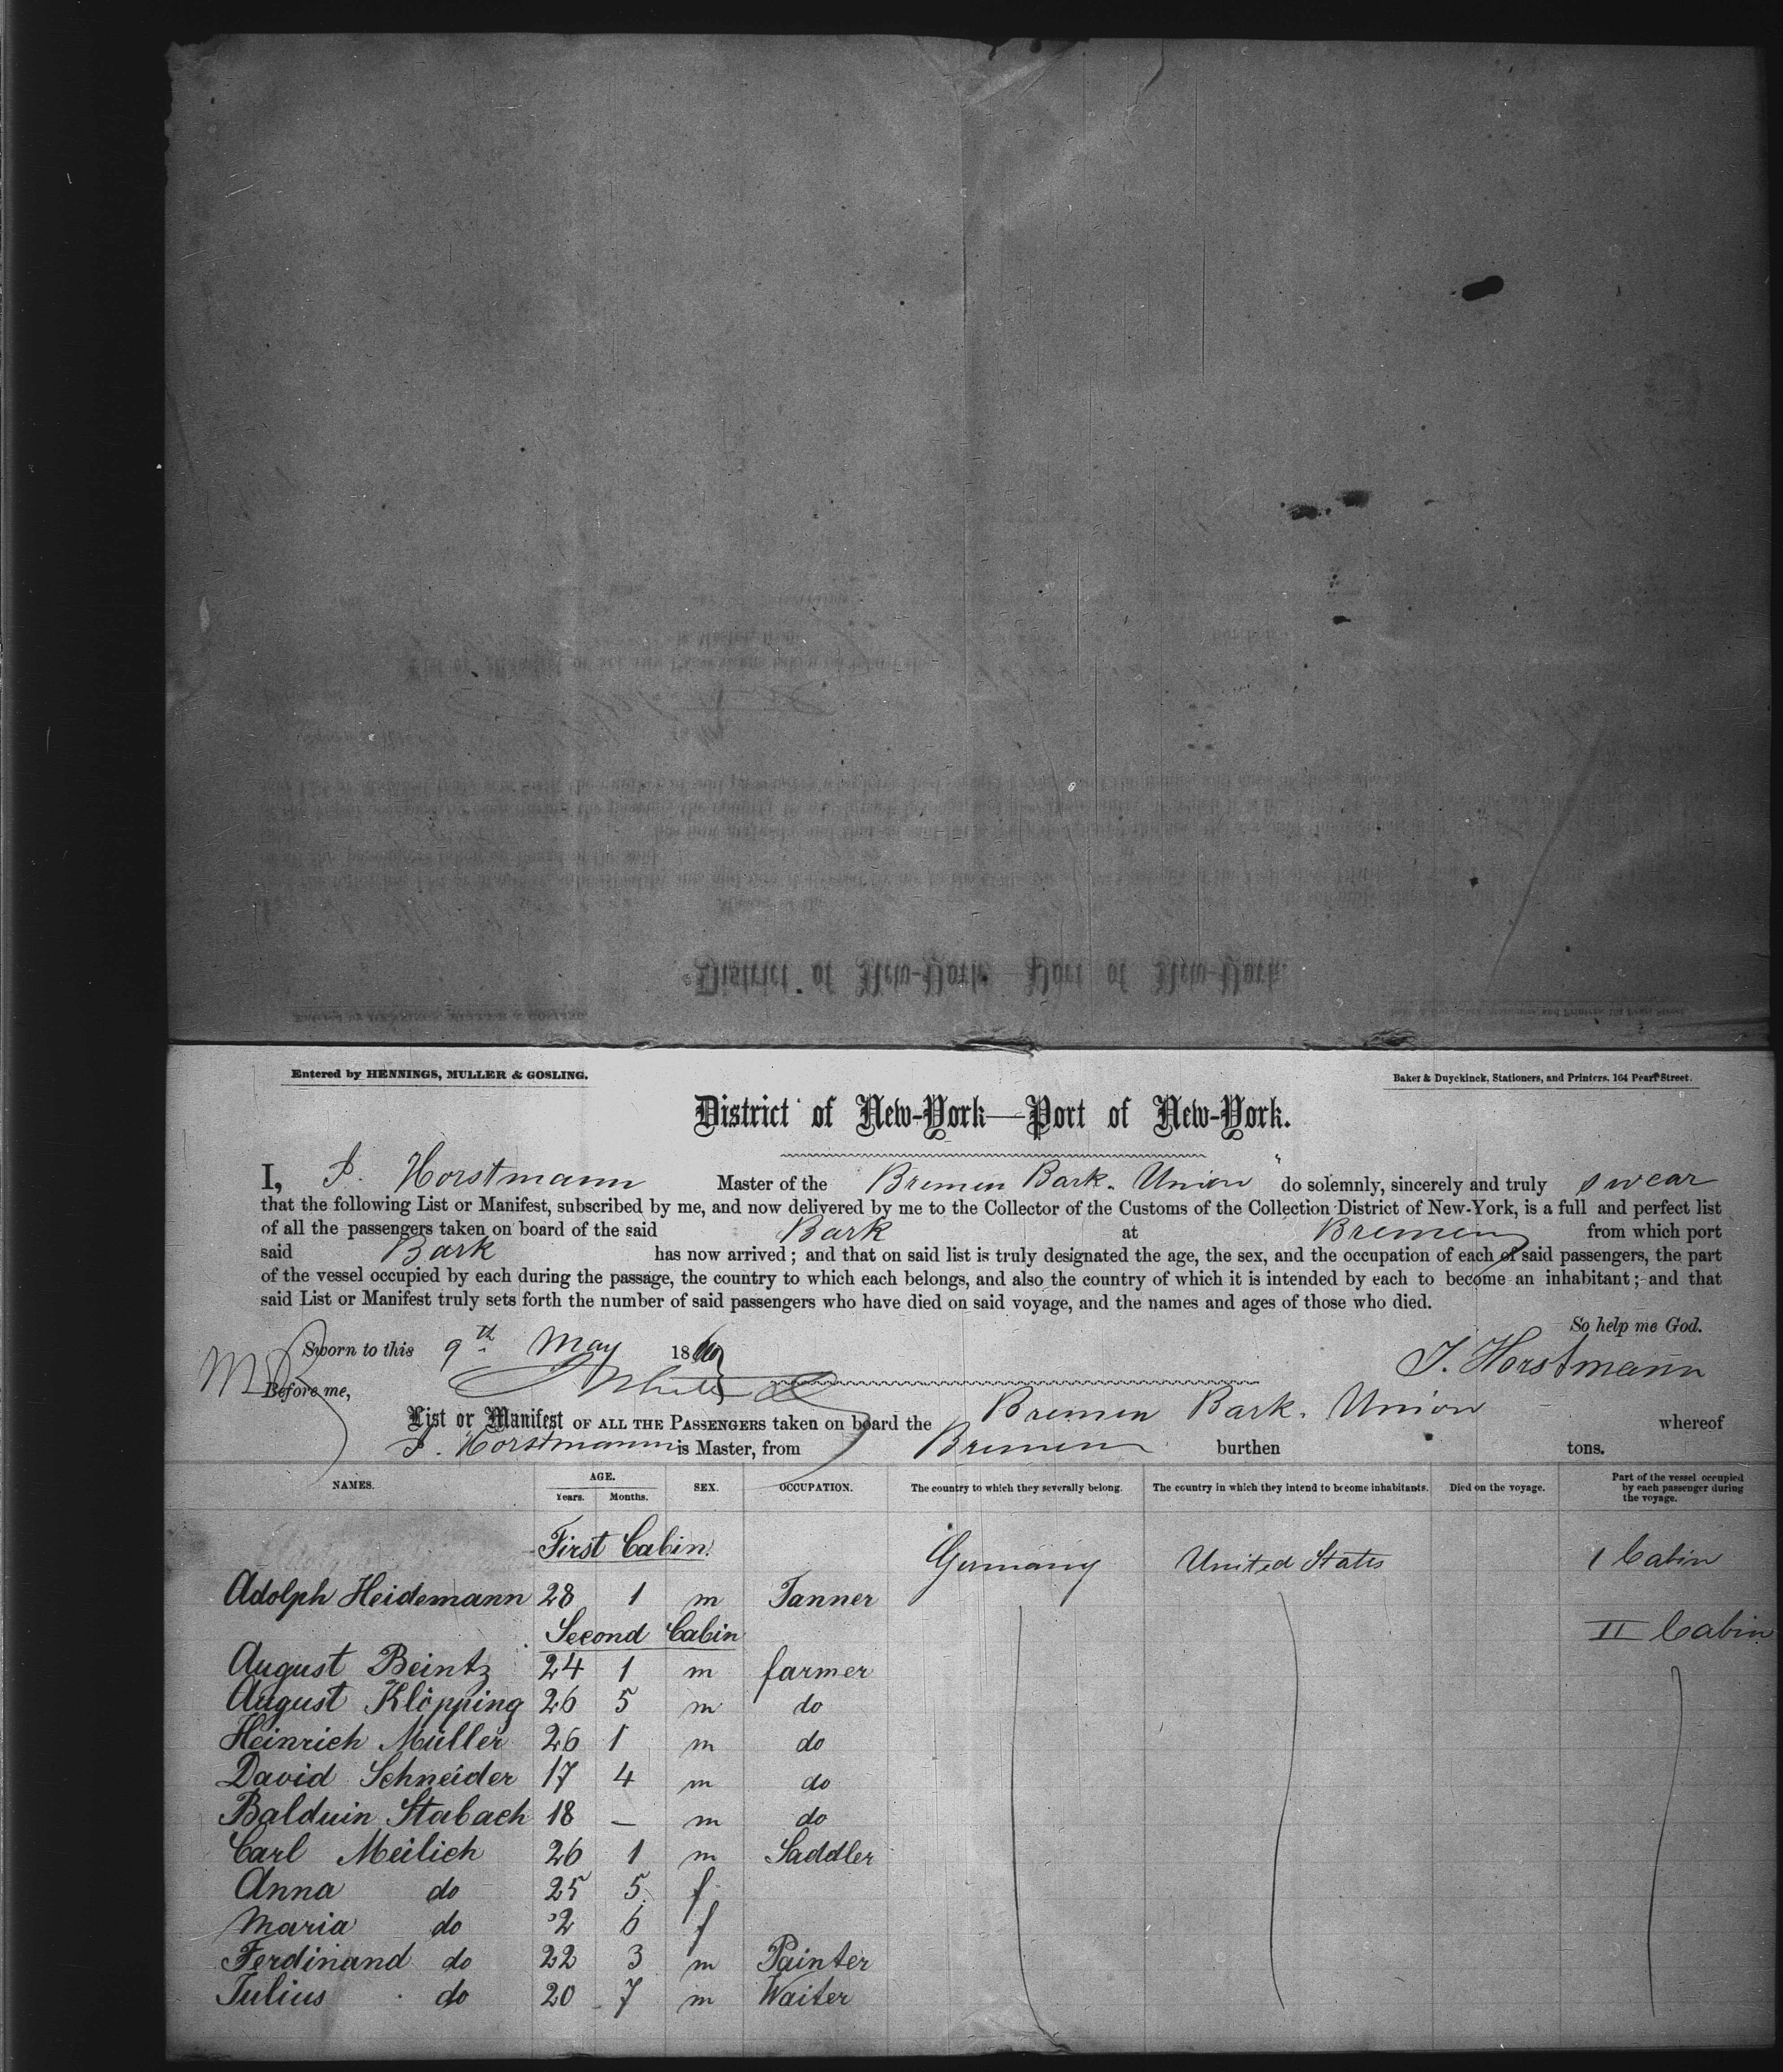 Entered by HENNINGS, MULLER & GOSLING.
Baker & Duyckinck, Stationers, and Printers. 164 Pearl Street.
District of New-York—Port of New-York.
I, J. Horstmann Master of the Bremen Bark. Union do solemnly, sincerely and truly swear
that the following List or Manifest, subscribed by me, and now delivered by me to the Collector of the Customs of the Collection District of New-York, is a full and perfect list
of all the passengers taken on board of the said Bark at Bremen from which port
said Bark has now arrived; and that on said list is truly designated the age, the sex, and the occupation of each of said passengers, the part
of the vessel occupied by each during the passage, the country to which each belongs, and also the country of which it is intended by each to become an inhabitant; and that
said List or Manifest truly sets forth the number of said passengers who have died on said voyage, and the names and ages of those who died.
So help me God.
Sworn to this 9th May 186
J. Horstmann
Before me,
List or Manifest OF ALL THE PASSENGERS taken on board the Bremen Bark. Union whereof
J. Horstmann is Master, from Bremen burthen tons.
NAMES. AGE. Years. Months. SEX. OCCUPATION. The country to which they severally belong. The country in which they intend to become inhabitants. Died on the voyage. Part of the vessel occupied by each passenger during the voyage.
First Cabin. Germany United States I Cabin
Adolph Heidemann 28 1 m Tanner
Second Cabin II Cabin
August Beintz 24 1 m farmer
August Klöpping 26 5 m do
Heinrich Müller 26 1 m do
David Schneider 17 4 m do
Balduin Stabach 18 — m do
Carl Meilich 26 1 m Saddler
Anna do 25 5 f
Maria do 2 6 f
Ferdinand do 22 3 m Painter
Julius do 20 7 m Waiter